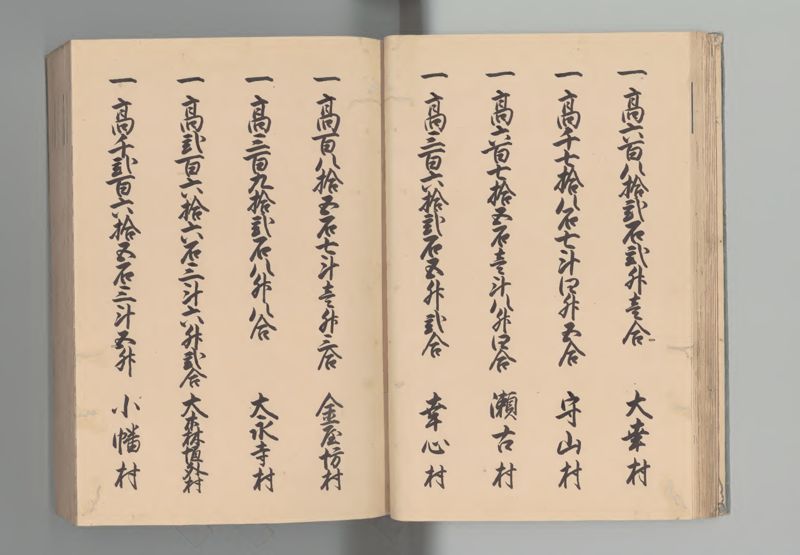 一高六百八拾弐石弐升壱合 大幸村
一高千七拾八石七斗四升五合 守山村
一高六百七拾五石壱斗八升四合 瀬古村
一高三百六拾弐石五升弐合 幸心村
一高百八拾五石七斗壱升三合 金屋坊村
一高三百九拾弐石八升八合 大永寺村
一高弐百六拾六石三斗六升弐合 大森垣外村
一高千弐百六拾五石三斗五升 小幡村